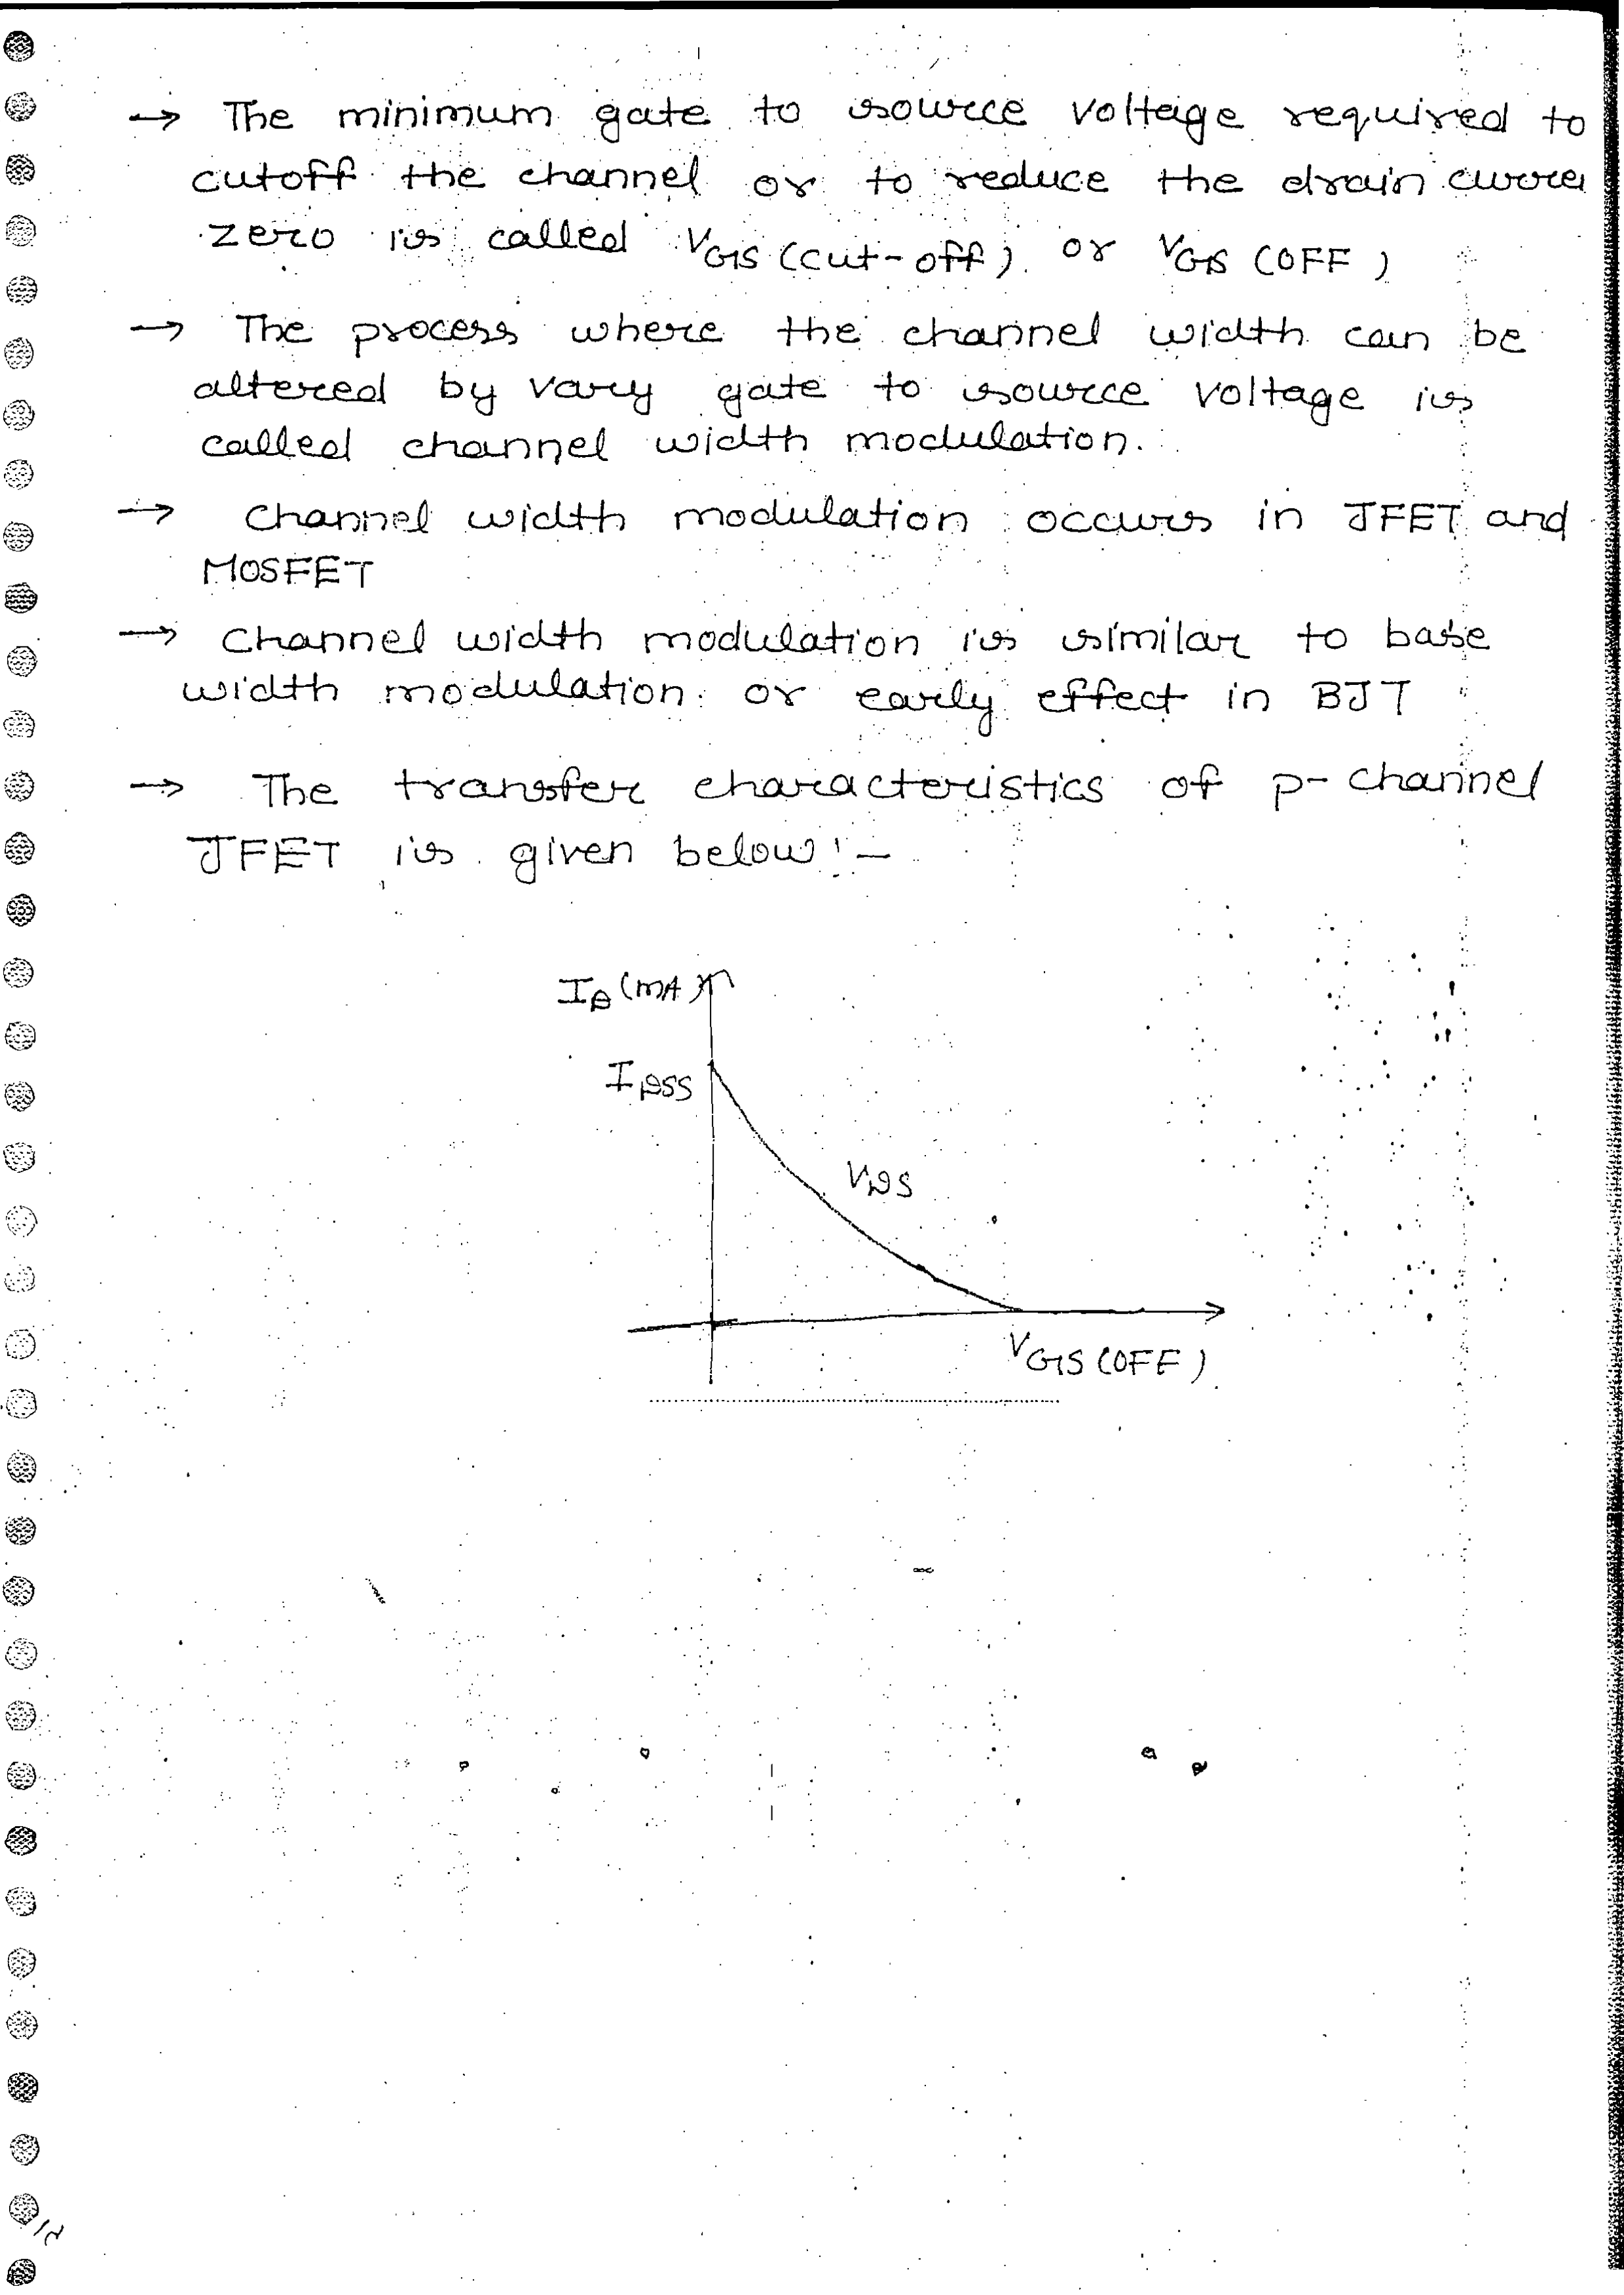 → The minimum gate to source voltage required to
cutoff the channel or to reduce the drain
zero is called VGS (cut-off) or VGS (OFF)
→ The process where the channel width can be
altered by vary gate to source voltage is
called channel width modulation.
→ channel width modulation occurs in JFET and
MOSFET
→ channel width modulation is similar to base
width modulation or early effect in BJT
→ The transfer characteristics of p-channel
JFET is given below :-
ID (mA)
IDSS
VDS
VGS (OFF)